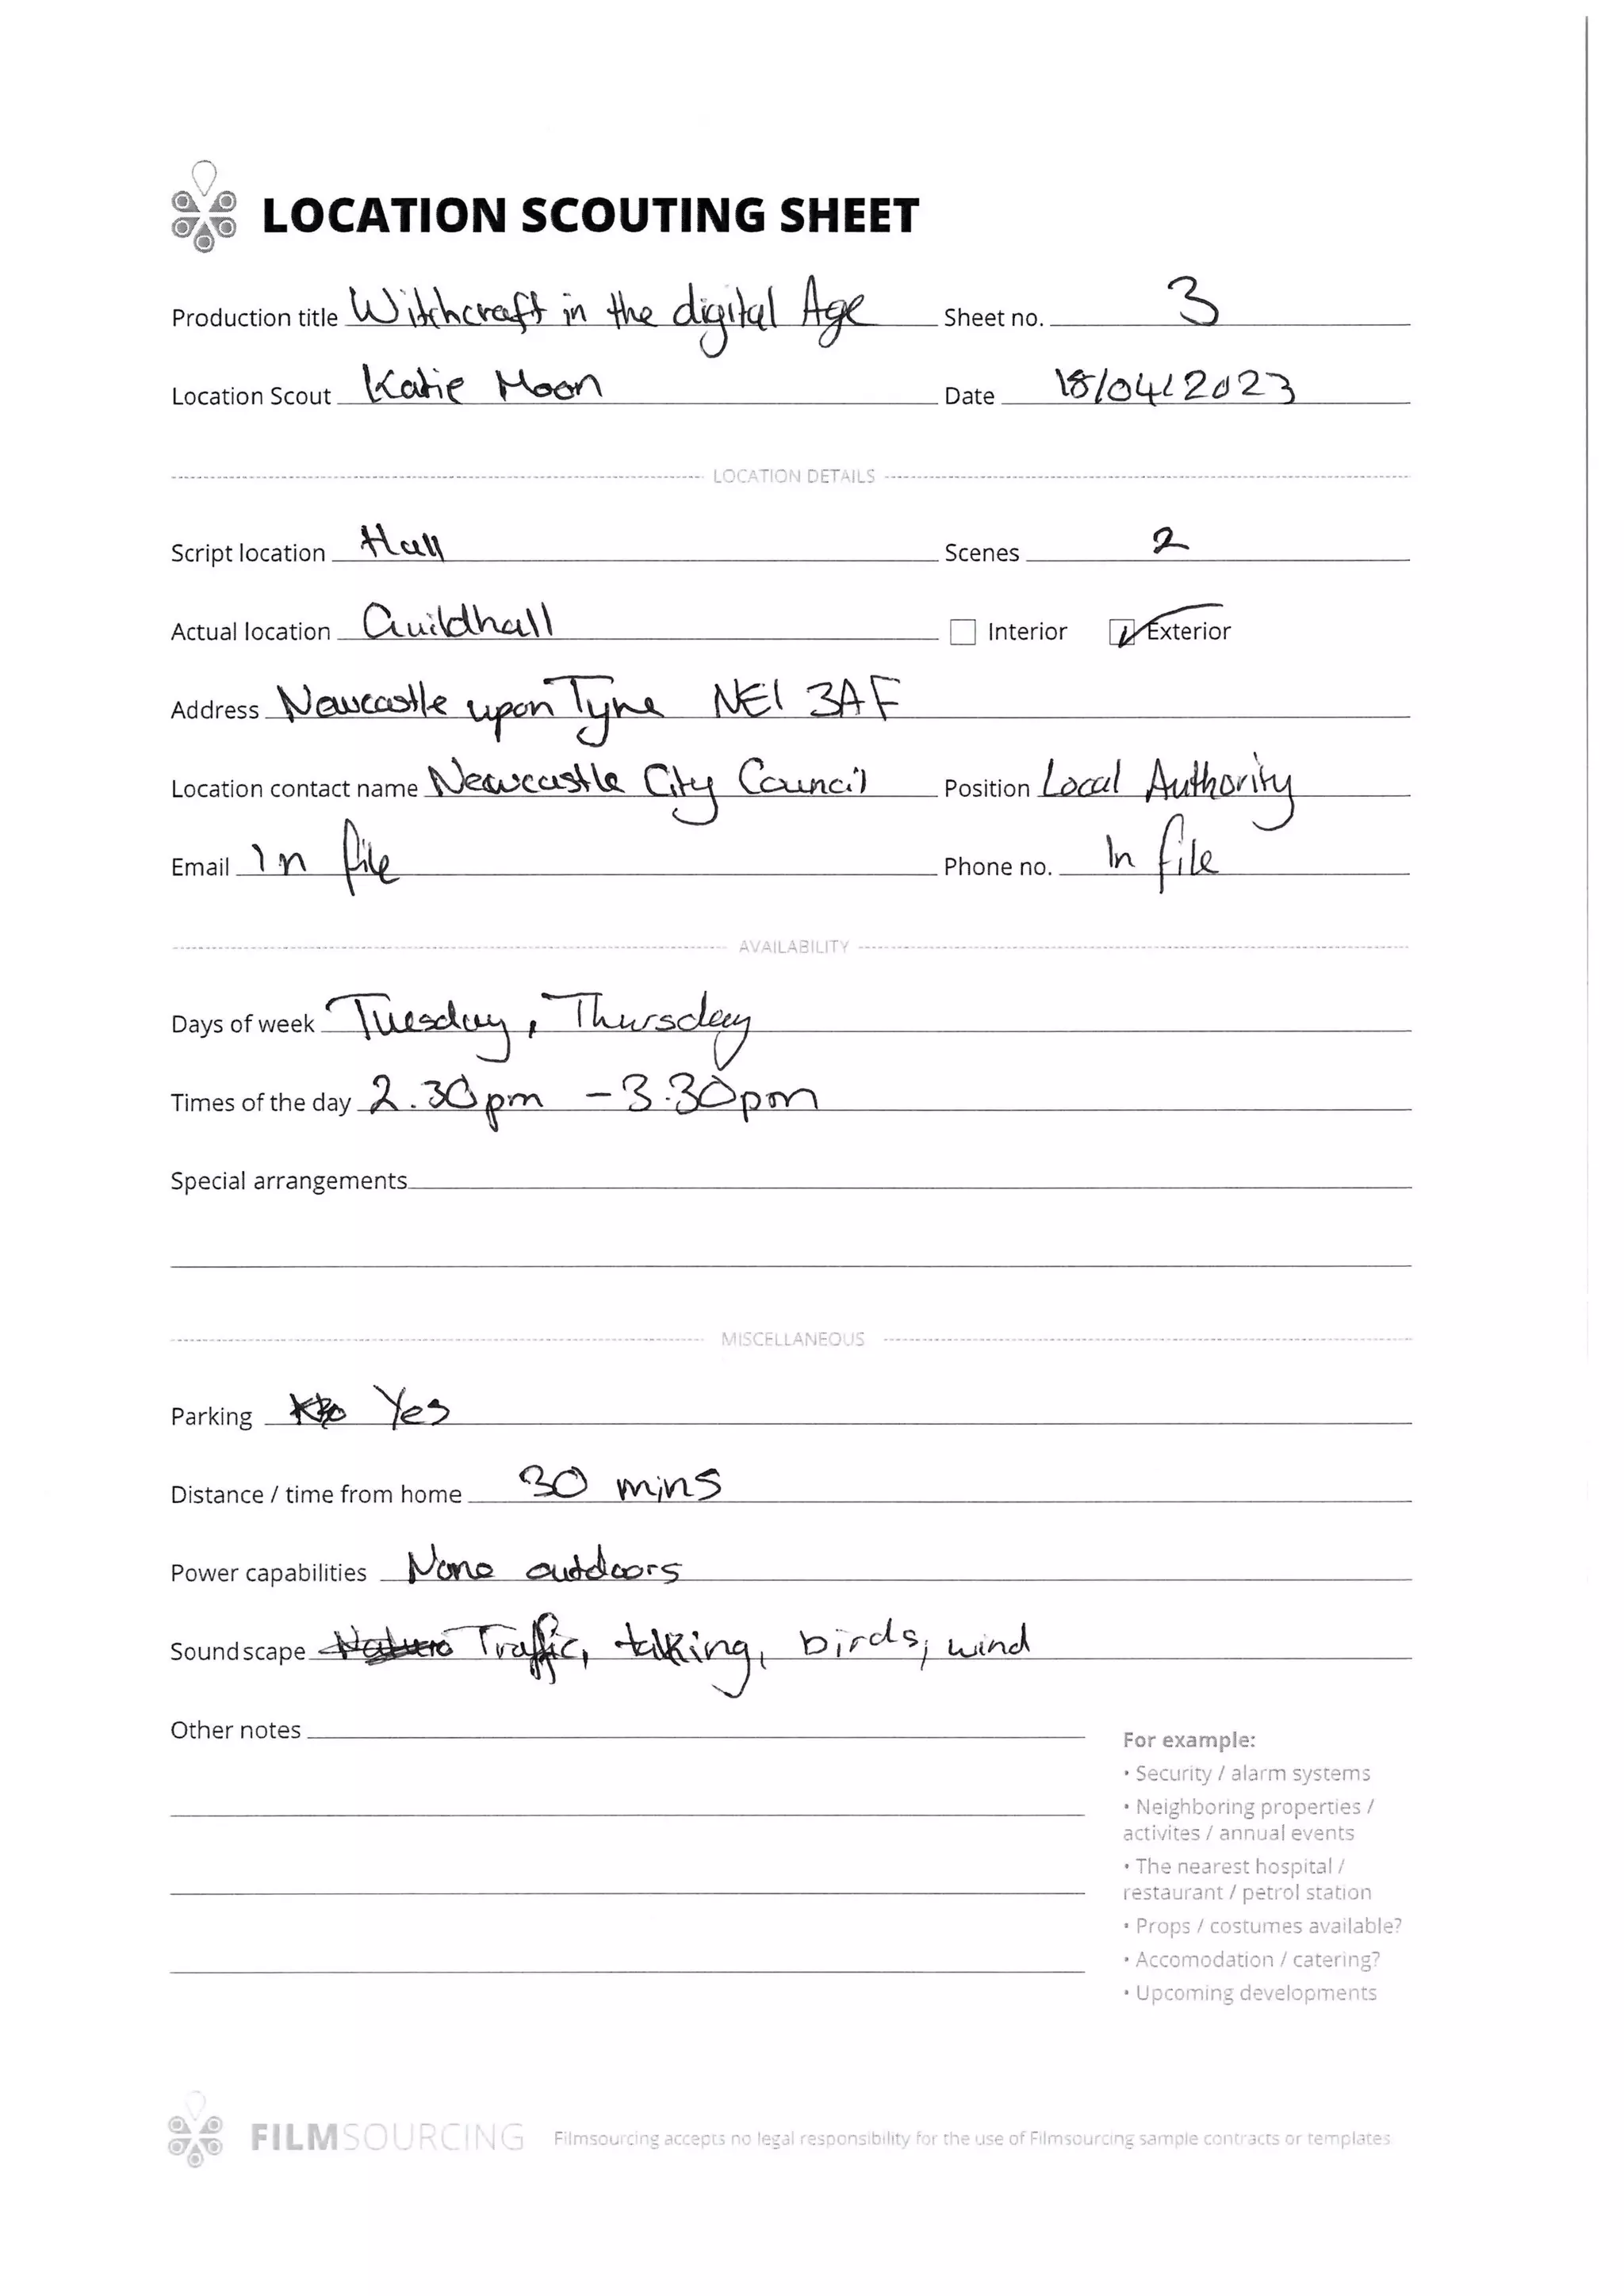 LOCATION SCOUTING SHEET
Production title Witchcraft in the digital Age Sheet no. 3
Location Scout Katie Moon Date 18/04/2023
LOCATION DETAILS
Script location Hall Scenes 2
Actual location Guildhall Interior Exterior
Address Newcastle upon Tyne NE1 3AF
Location contact name Newcastle City Council Position Local Authority
Email In file Phone no. In file
AVAILABILITY
Days of week Tuesday, Thursday
Times of the day 2.30pm - 3.30pm
Special arrangements
MISCELLANEOUS
Parking Yes
Distance / time from home 30 mins
Power capabilities None outdoors
Soundscape Nature Traffic, talking, birds, wind
Other notes
For example:
• Security / alarm systems
• Neighboring properties /
activites / annual events
• The nearest hospital /
restaurant / petrol station
• Props / costumes available?
• Accomodation / catering?
• Upcoming developments
FILMSOURCING Filmsourcing accepts no legal responsibility for the use of Filmsourcing sample contracts or templates